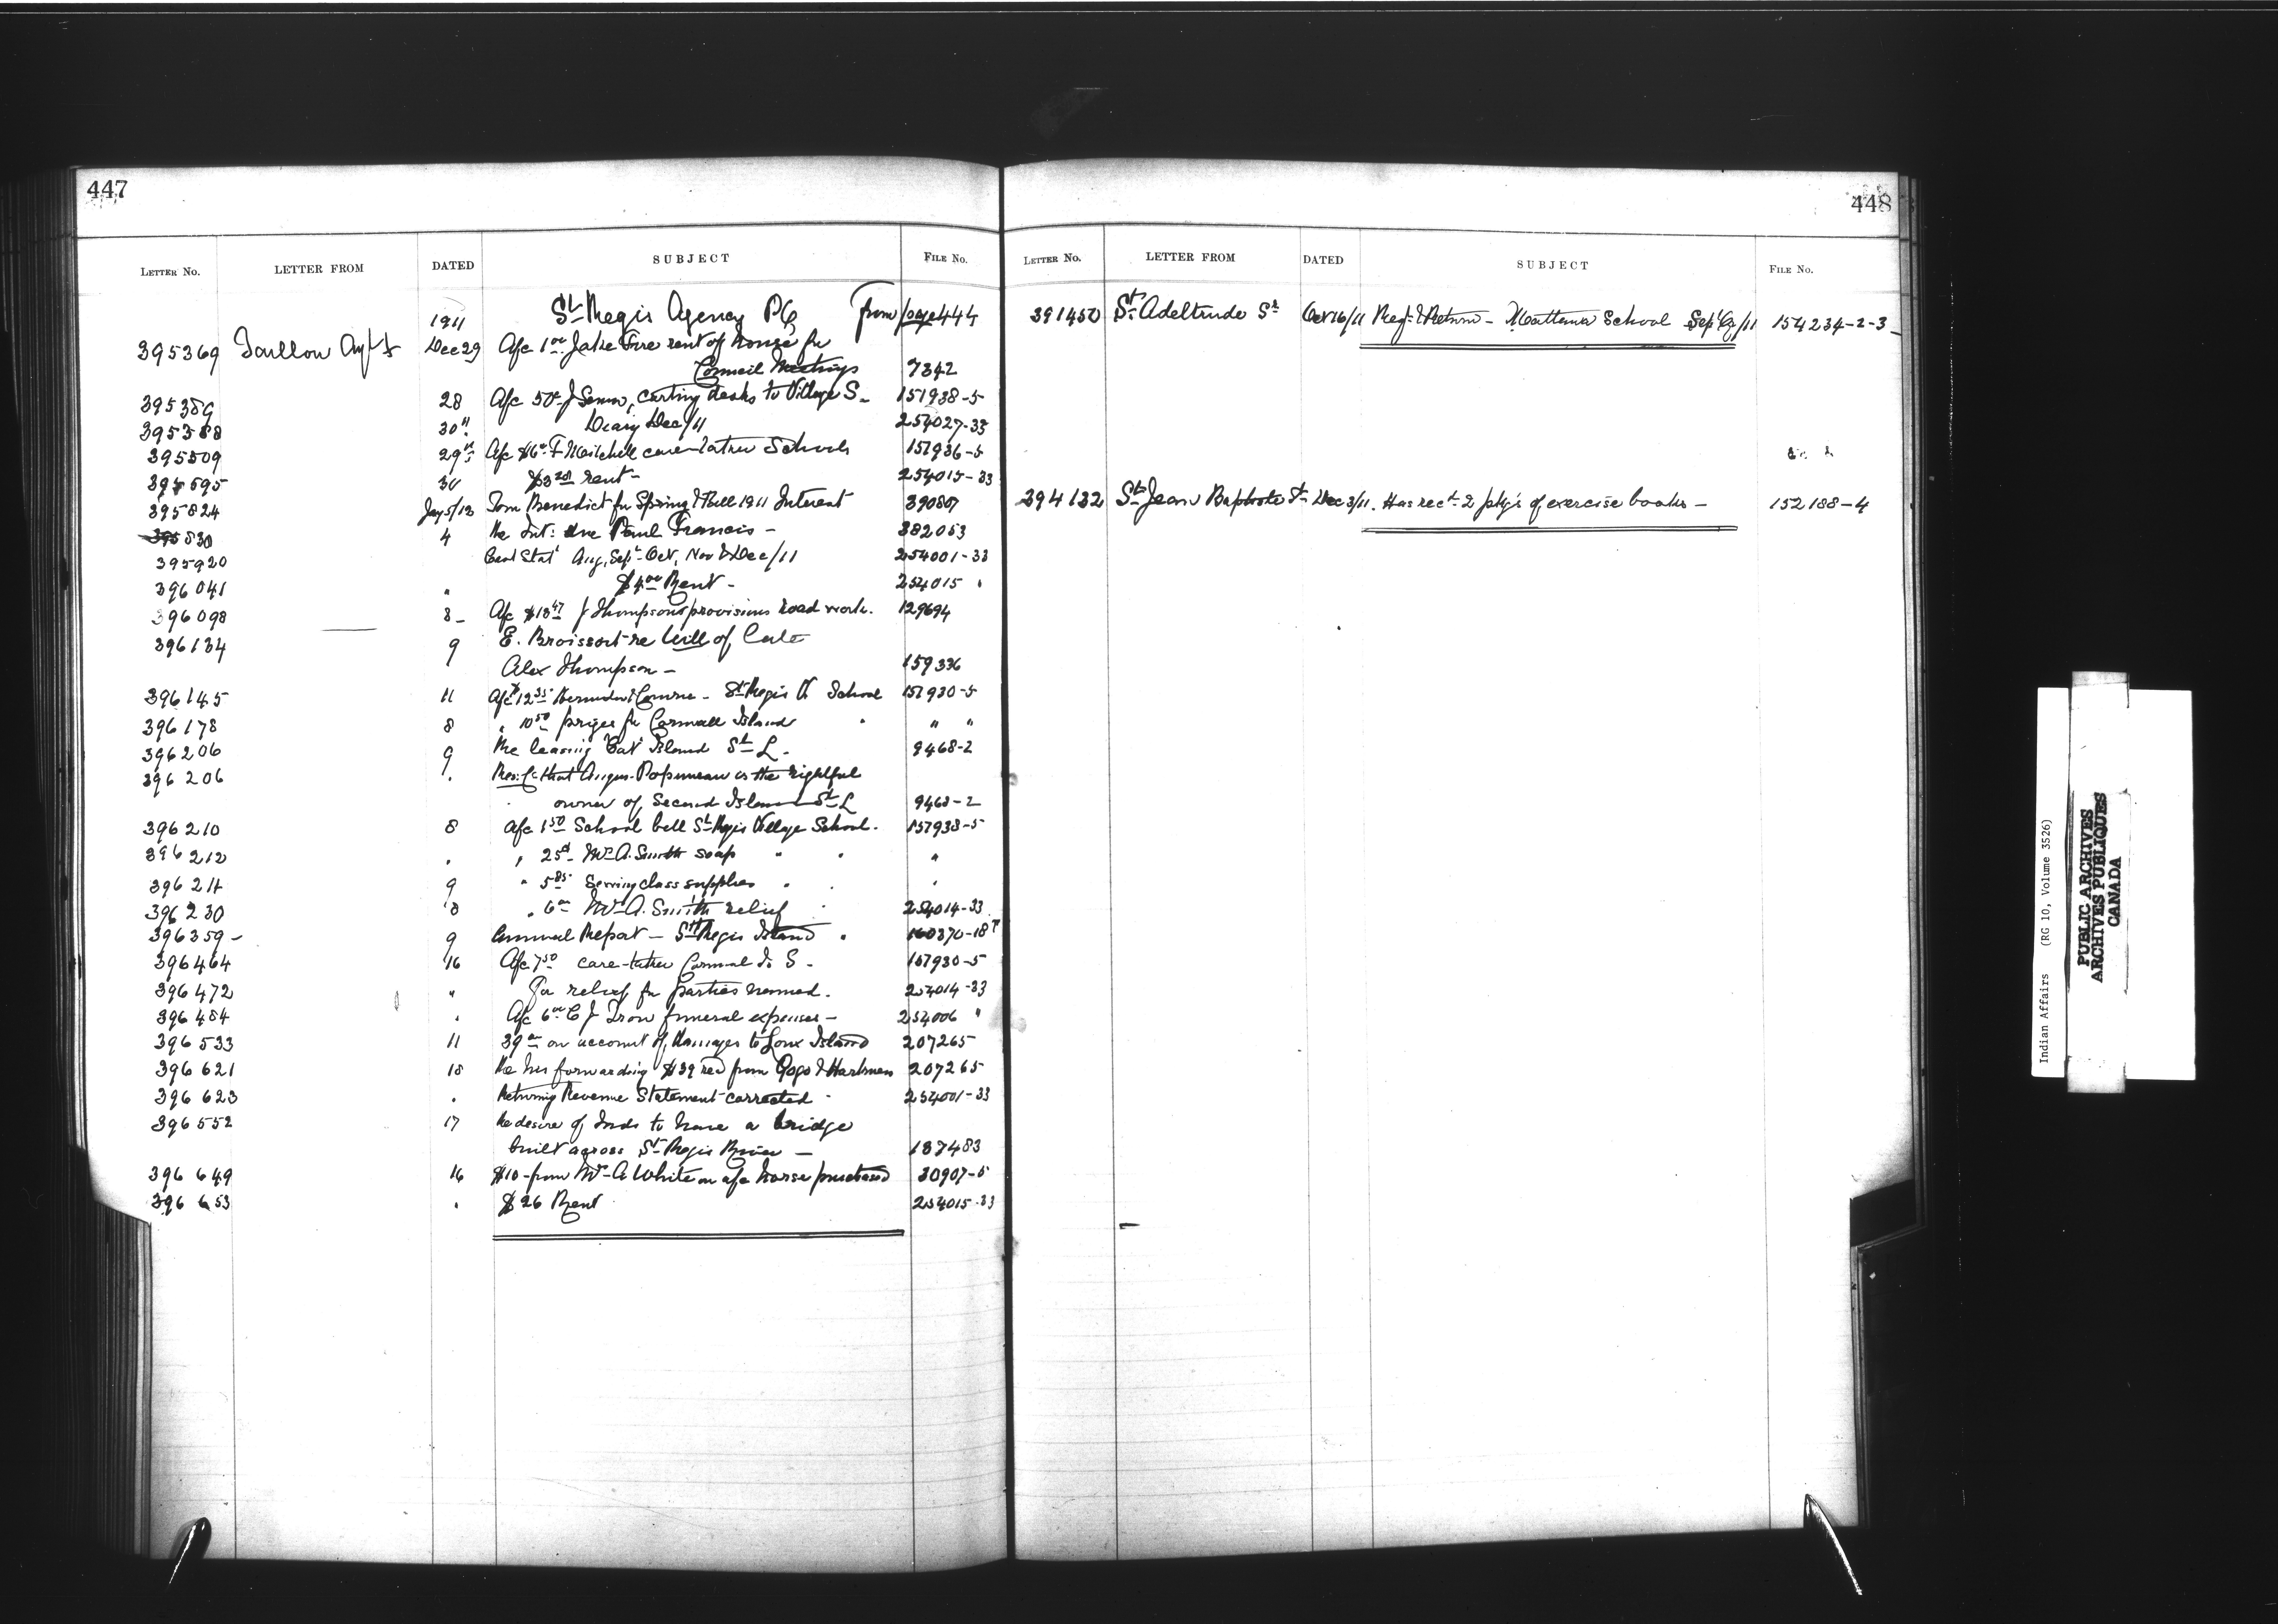 447
LETTER No. LETTER FROM DATED SUBJECT FILE No.
1911 St Regis Agency PQ From page 444
395369 Taillon Agt Dec 29 A/c 1.00 Jake Fire rent of house for
Council Meetings 7342
395389 28 A/c 50c J Seneca, carting desks to Village S. 151938-5
395388 30" Diary Dec/11 254027-33
395509 29th A/c $6.00 F Mitchell care-taker Schools 151936-5
395595 30 rent - 254015-33
395824 Jay 5/12 Tom Benedict for Spring & Fall 1911 Interest 39080
395830 4 Re Int: due Paul Francis - 382053
395920 Cent Stat Aug, Sept, Oct, Nov & Dec/11 254001-33
396041 " $4.00 Rent - 254015 "
396098 8 - A/c $18.47 J Thompson provisions road work. 129694
396134 9 E. Broissoit re Will of late
Alex Thompson - 159336
396145 11 A/c $12.35 St Regis Is School 151930-5
396178 8 " 10.50 prizes for Cornwall Island " " "
396206 9 Re leasing 'Cat' Island St L. 9468-2
396206 " Res: C: that Angus Papineau is the rightful
owner of Second Island St L 9468-2
396210 8 A/c 1.50 School bell St Regis Village School. 151938-5
396212 " " 25c Mrs A. Smith soap " " "
396211 9 " 5.85 Sewing class supplies " " "
396230 8 " 6.00 Mrs A. Smith relief " 254014-33
396359 - 9 Annual Report - St Regis Island " 160370-18
396464 16 A/c 7.50 care-taker Cornwal Is S. 151930-5
396472 " For relief for parties named. 254014-33
396484 " A/c 6.00 C J Iron funeral expenses - 254006 "
396533 11 39.00 on account of damages to Loux Island 207265
396621 18 Re his forwarding $39 recd from Gogo & Hartman 207265
396623 " Returning Revenue Statement corrected - 254001-33
396552 17 Re desire of Inds to have a bridge
built across St Regis River - 187483
396649 16 $10 - from Mrs A White on a/c horse purchased 30907-5
396653 " $26 Rent 254015-33
448
LETTER No. LETTER FROM DATED SUBJECT FILE No.
391450 St Adeltrude Sr Oct 16/11 Reqn & Return - Mattawa School Sept Qr/11 154234-2-3
394132 St Jean Baptiste Sr Dec 3/11. Has recd 2 pkgs of exercise books - 152188-4
Indian Affairs (RG 10, Volume 3526)
PUBLIC ARCHIVES
ARCHIVES PUBLIQUES
CANADA